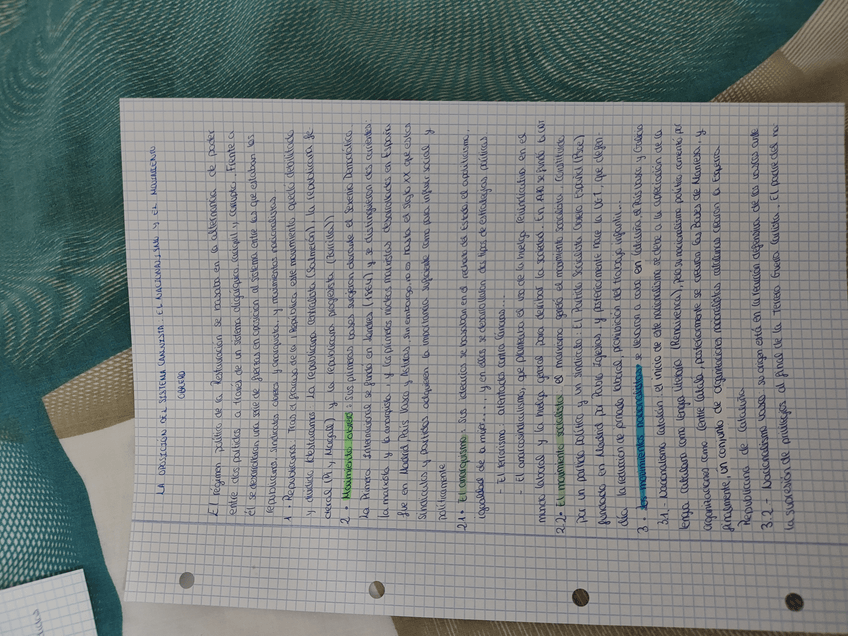 LA OPOSICIÓN DEL SISTEMA CANOVISTA. EL NACIONALISMO Y EL MOVIMIENTO
OBRERO
El régimen político de la Restauración se basaba en la alternancia de poder
entre dos partidos a través de un sistema oligárquico caciquil y corrupto. Frente a
él se desarrollaron una serie de fuerzas en oposición al sistema entre las que estaban los
republicanos, sindicatos obreros y anarquistas, y movimientos nacionalistas
1- Republicanos. Tras el fracaso de la I República este movimiento quedó debilitado
y dividido. Los republicanos centralistas (Salmerón). Los republicanos fe
derales (Pi y Margall) y los republicanos progresistas (Zorrilla))
2 • Movimiento obrero: Sus primeras bases surgieron durante el Sexenio Democrático.
La Primera Internacional se fundó en Londres (1864) y se distinguieron dos corrientes
la marxista y la anarquista. y los primeros núcleos marxistas desarrollados en España
fue en Madrid, País Vasco y Asturias, sin embargo no es hasta el siglo XX que estos
sindicatos y partidos adquieren la importancia suficiente como para influir social y
políticamente
2.1• El anarquismo: Sus ideales se basaban en el rechazo al Estado, el capitalismo,
igualdad de la mujer... y en ellos se desarrollaron dos tipos de estrategias políticas
- El terrorismo: atentados contra
- El anarcosindicalismo, que planteaba el uso de la huelga reivindicativa en el
mundo laboral y la huelga general para debilitar la sociedad. En 1910 se fundó la CNT
2.2• El movimiento socialista: el marxismo generó el movimiento socialista. Constituido
por un partido político y un sindicato. El Partido Socialista Obrero Español (PSOE)
fundado en Madrid por Pablo Iglesias y posteriormente nace la UGT, que defen
día, la reducción de jornada laboral, prohibición del trabajo infantil...
3 • Los movimientos nacionalistas se llevaron a cabo en Cataluña, el País Vasco y Galicia
3.1. Nacionalismo catalán: el inicio de este nacionalismo se debe a la apreciación de la
lengua catalana como lengua literaria (Renaixença),
organizaciones como Centre Català, posteriormente se crearon las Bases de Manresa, y
finalmente, un conjunto de organizaciones nacionalistas catalanas crearon la Esquerra
Republicana de Cataluña
3.2 - Nacionalismo vasco: su origen está en la reacción defensiva de los vascos ante
la supresión de privilegios al final de la Tercera Guerra Carlista. El padre del na